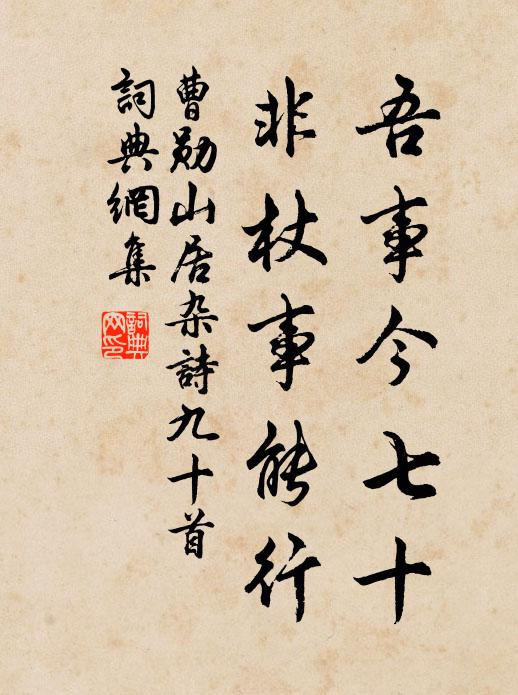 吾事今七十
非杖事能行
曹勛山居杂詩九十首
詞典網集
詞典網印